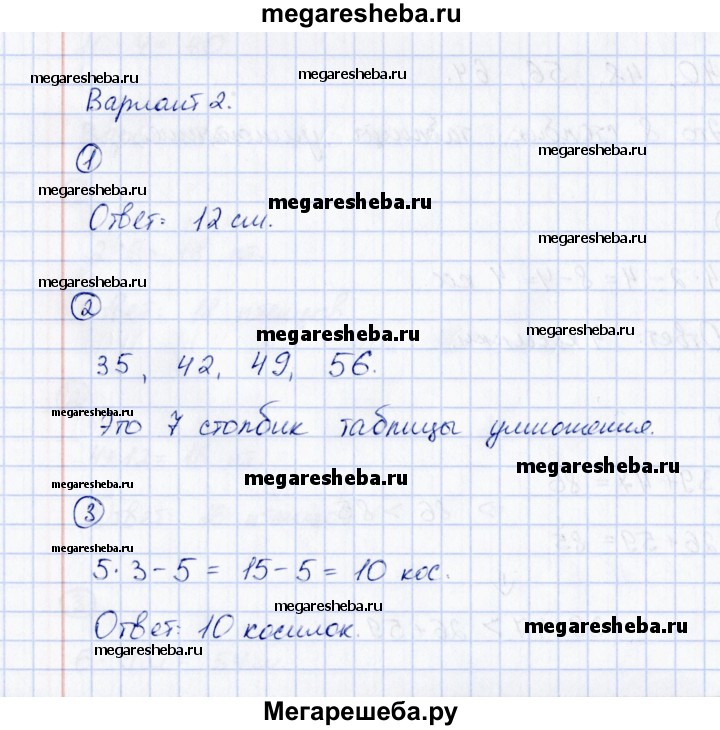 megaresheba.ru
megaresheba.ru
megaresheba.ru
Вариант 2.
megaresheba.ru
1
megaresheba.ru
megaresheba.ru
Ответ: 12 см.
megaresheba.ru
megaresheba.ru
2
megaresheba.ru
megaresheba.ru
35, 42, 49, 56.
megaresheba.ru
Это 7 столбик таблицы умножения.
megaresheba.ru
megaresheba.ru
megaresheba.ru
3
megaresheba.ru
5 · 3 - 5 = 15 - 5 = 10 кос.
megaresheba.ru
Ответ: 10 косилок.
megaresheba.ru
megaresheba.ru
Мегарешеба.ру